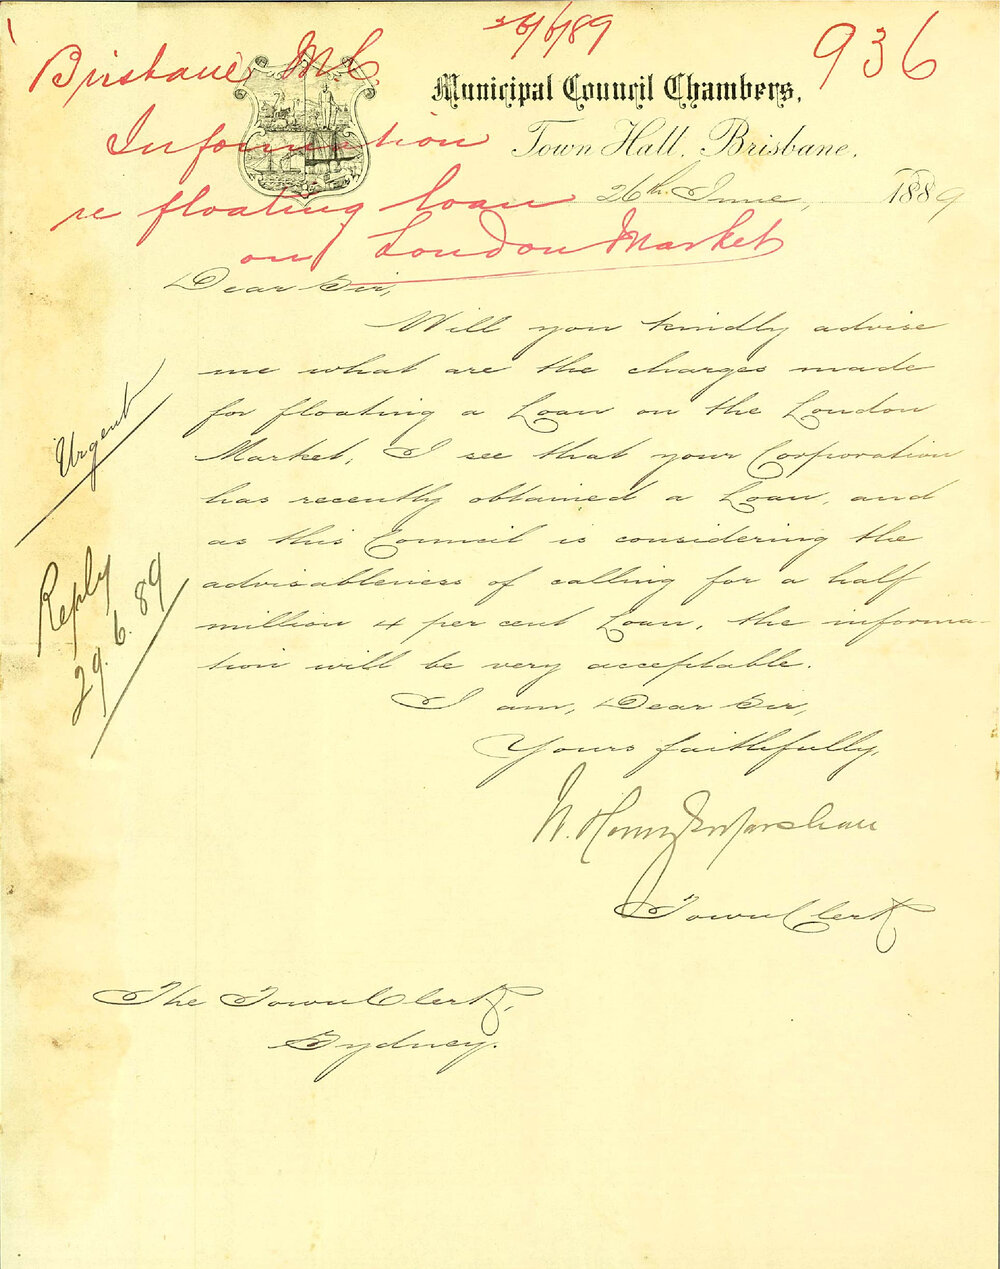 26/6/89
936
Brisbane M C
Information
re floating loan
on London Market
Municipal Council Chambers,
Town Hall, Brisbane,
26th June, 1889
Dear Sir,
Will you kindly advise
me what are the charges made
for floating a Loan on the London
Market, I see that your Corporation
has recently obtained a Loan, and
as this Council is considering the
advisableness of calling for a half
million 4 per cent Loan, the informa-
tion will be very acceptable.
I am, Dear Sir,
Yours faithfully,
W. Henry G. Marshall
Town Clerk
Urgent
Reply
29.6.89
The Town Clerk,
Sydney.